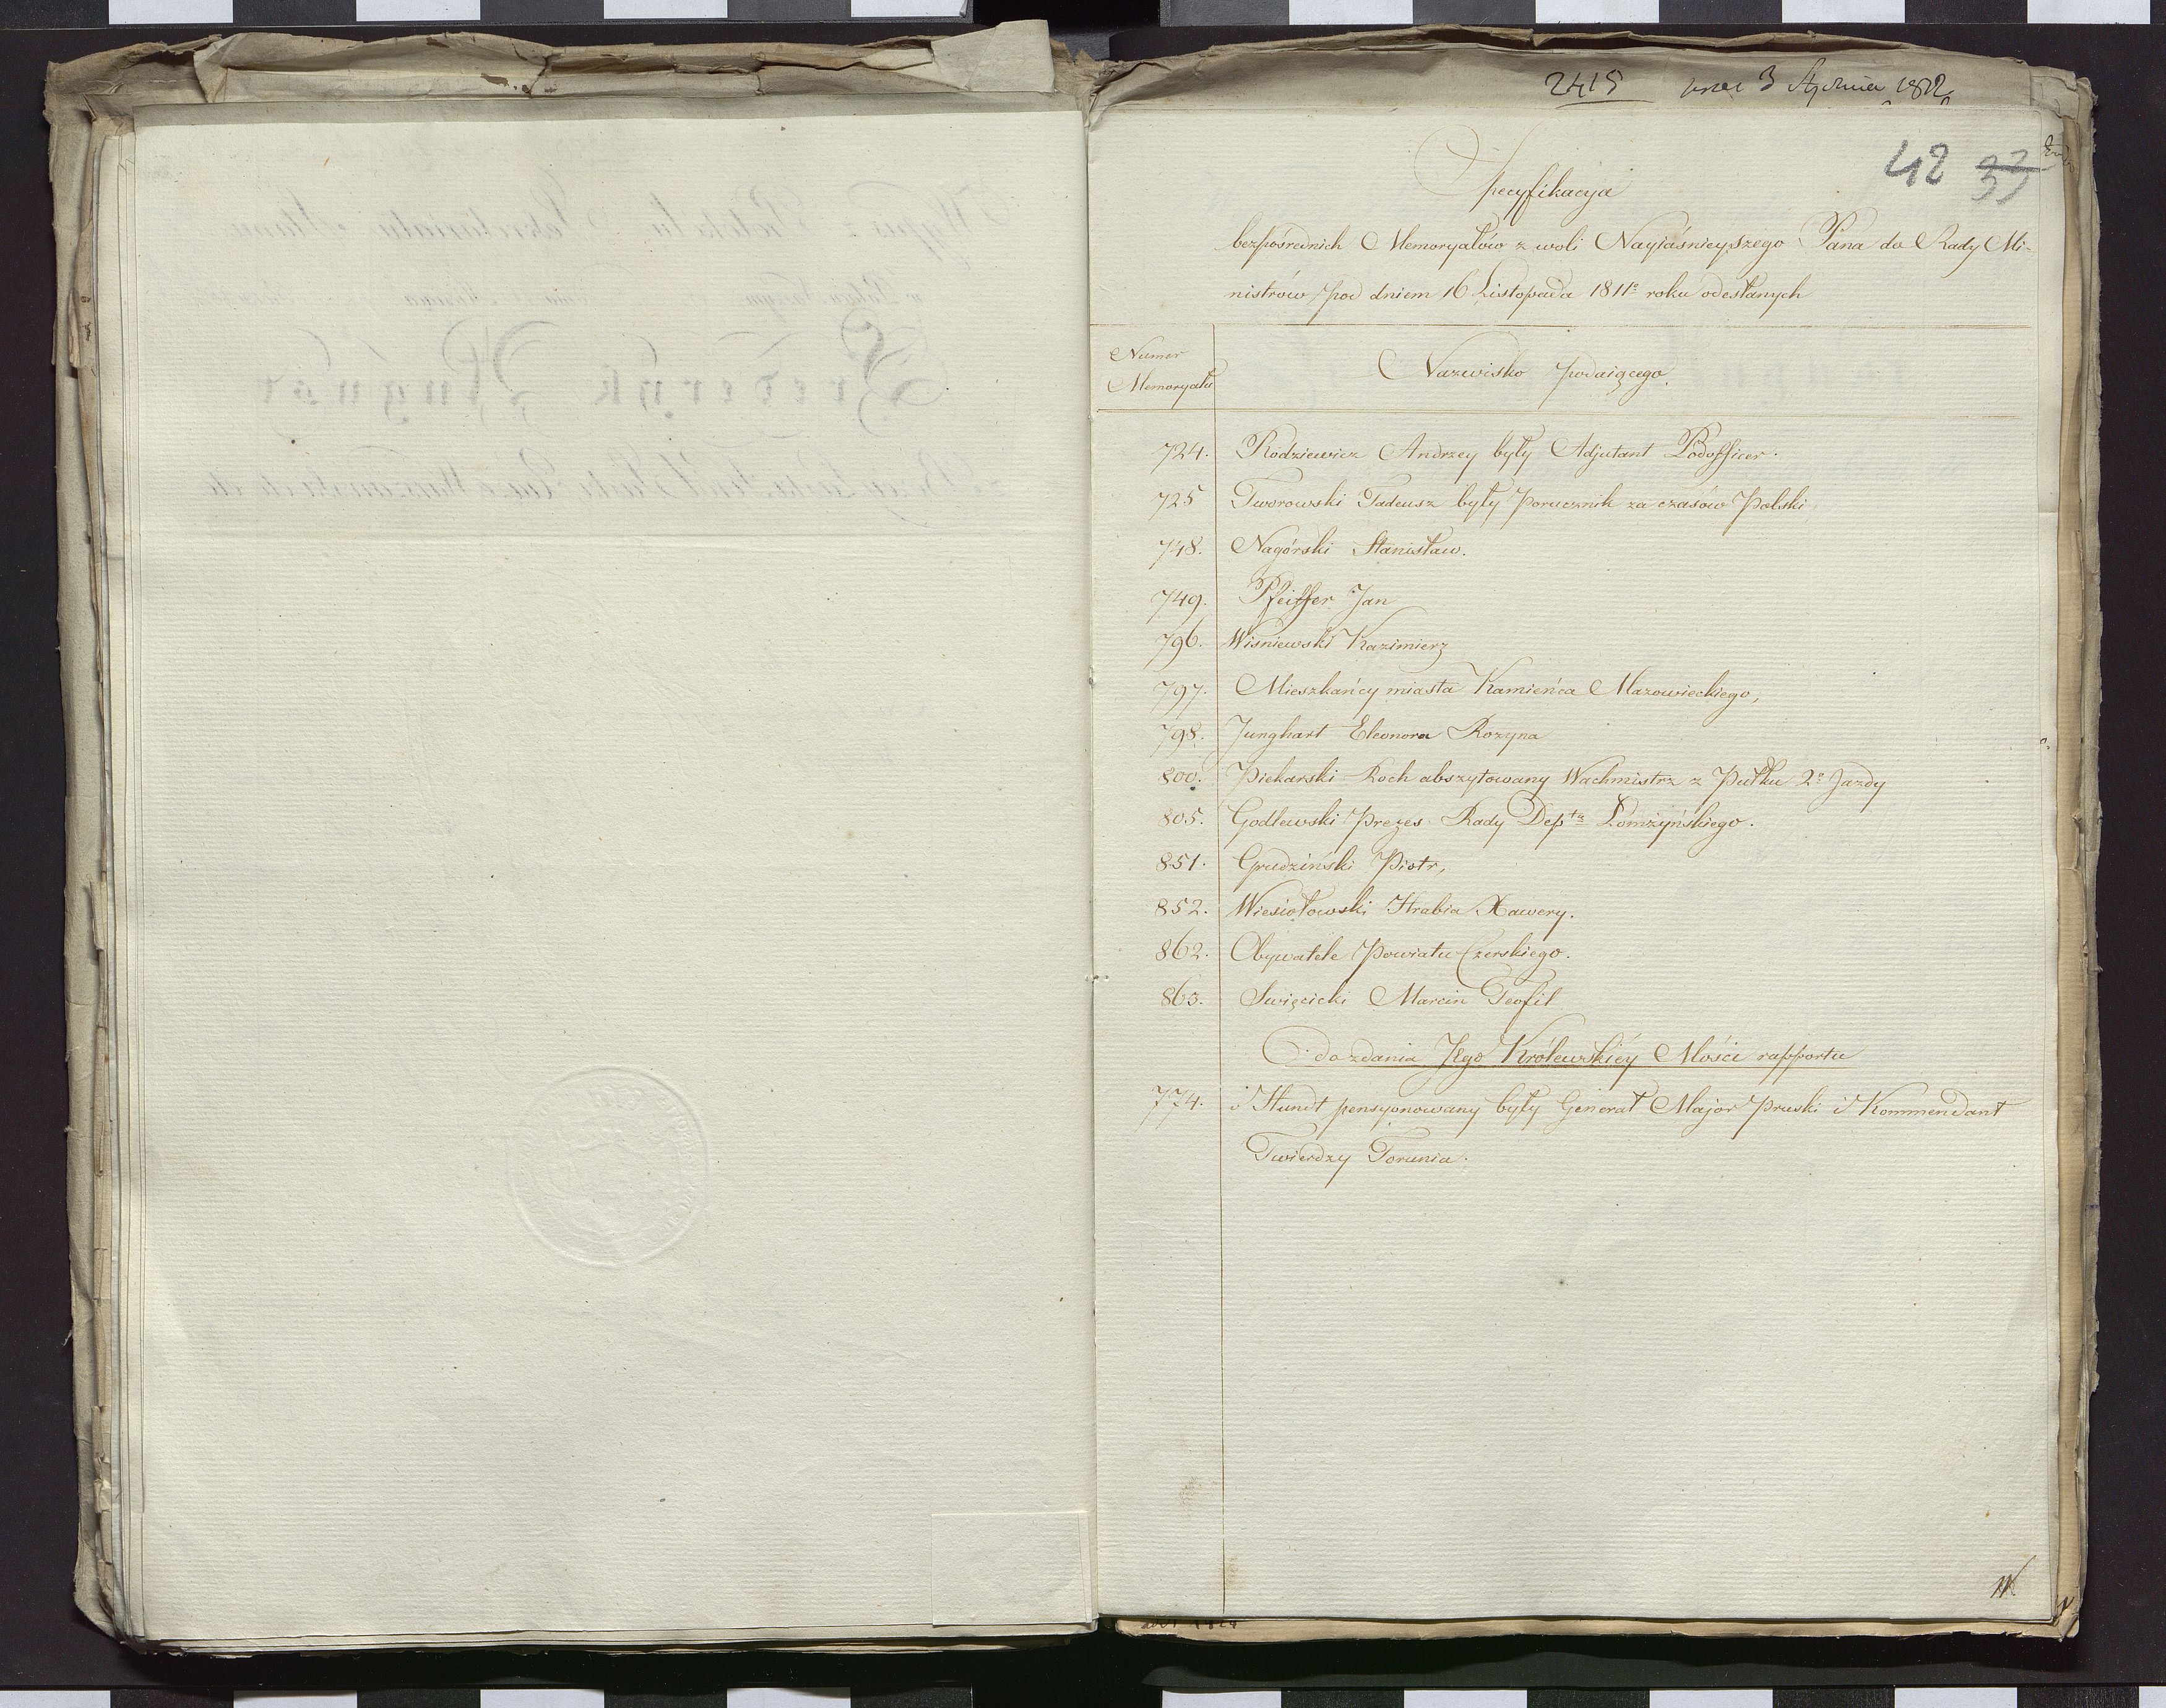 2415 3 Stycznia 1812
42 33
Specyfikacya
bezpośrednich Memoryałów z woli Nayiaśnieyszego Pana do Rady Mi-
nistrów pod dniem 16 Listopada 1811º roku odesłanych
Numer
Memoryału
Nazwisko podaiącego.
724. Rodziewicz Andrzey były Adjutant Podofficer.
725 Tworowski Tadeusz były Porucznik za czasów Polski
748. Nagórski Stanisław.
749. Pfeiffer Jan
796. Wisniewski Kazimierz
797. Mieszkańcy miasta Kamieńca Mazowieckiego,
798. Junghart Eleonora Rozyna
800. Piekarski Roch abszytowany Wachmistrz z Pułku 2º Jazdy
805. Godlewski Prezes Rady Dep.tu Łomżyńskiego.
851. Grudziński Piotr,
852. Wiesiołowski Hrabia Xawery.
862. Obywatele Powiatu Czerskiego.
863. Swięcicki Marcin Teofil
do zdania Jego Królewskiéy Mości rapportu
774. Hundt pensyonowany były Generał Major Pruski i Kommendant
Twierdzy Torunia.